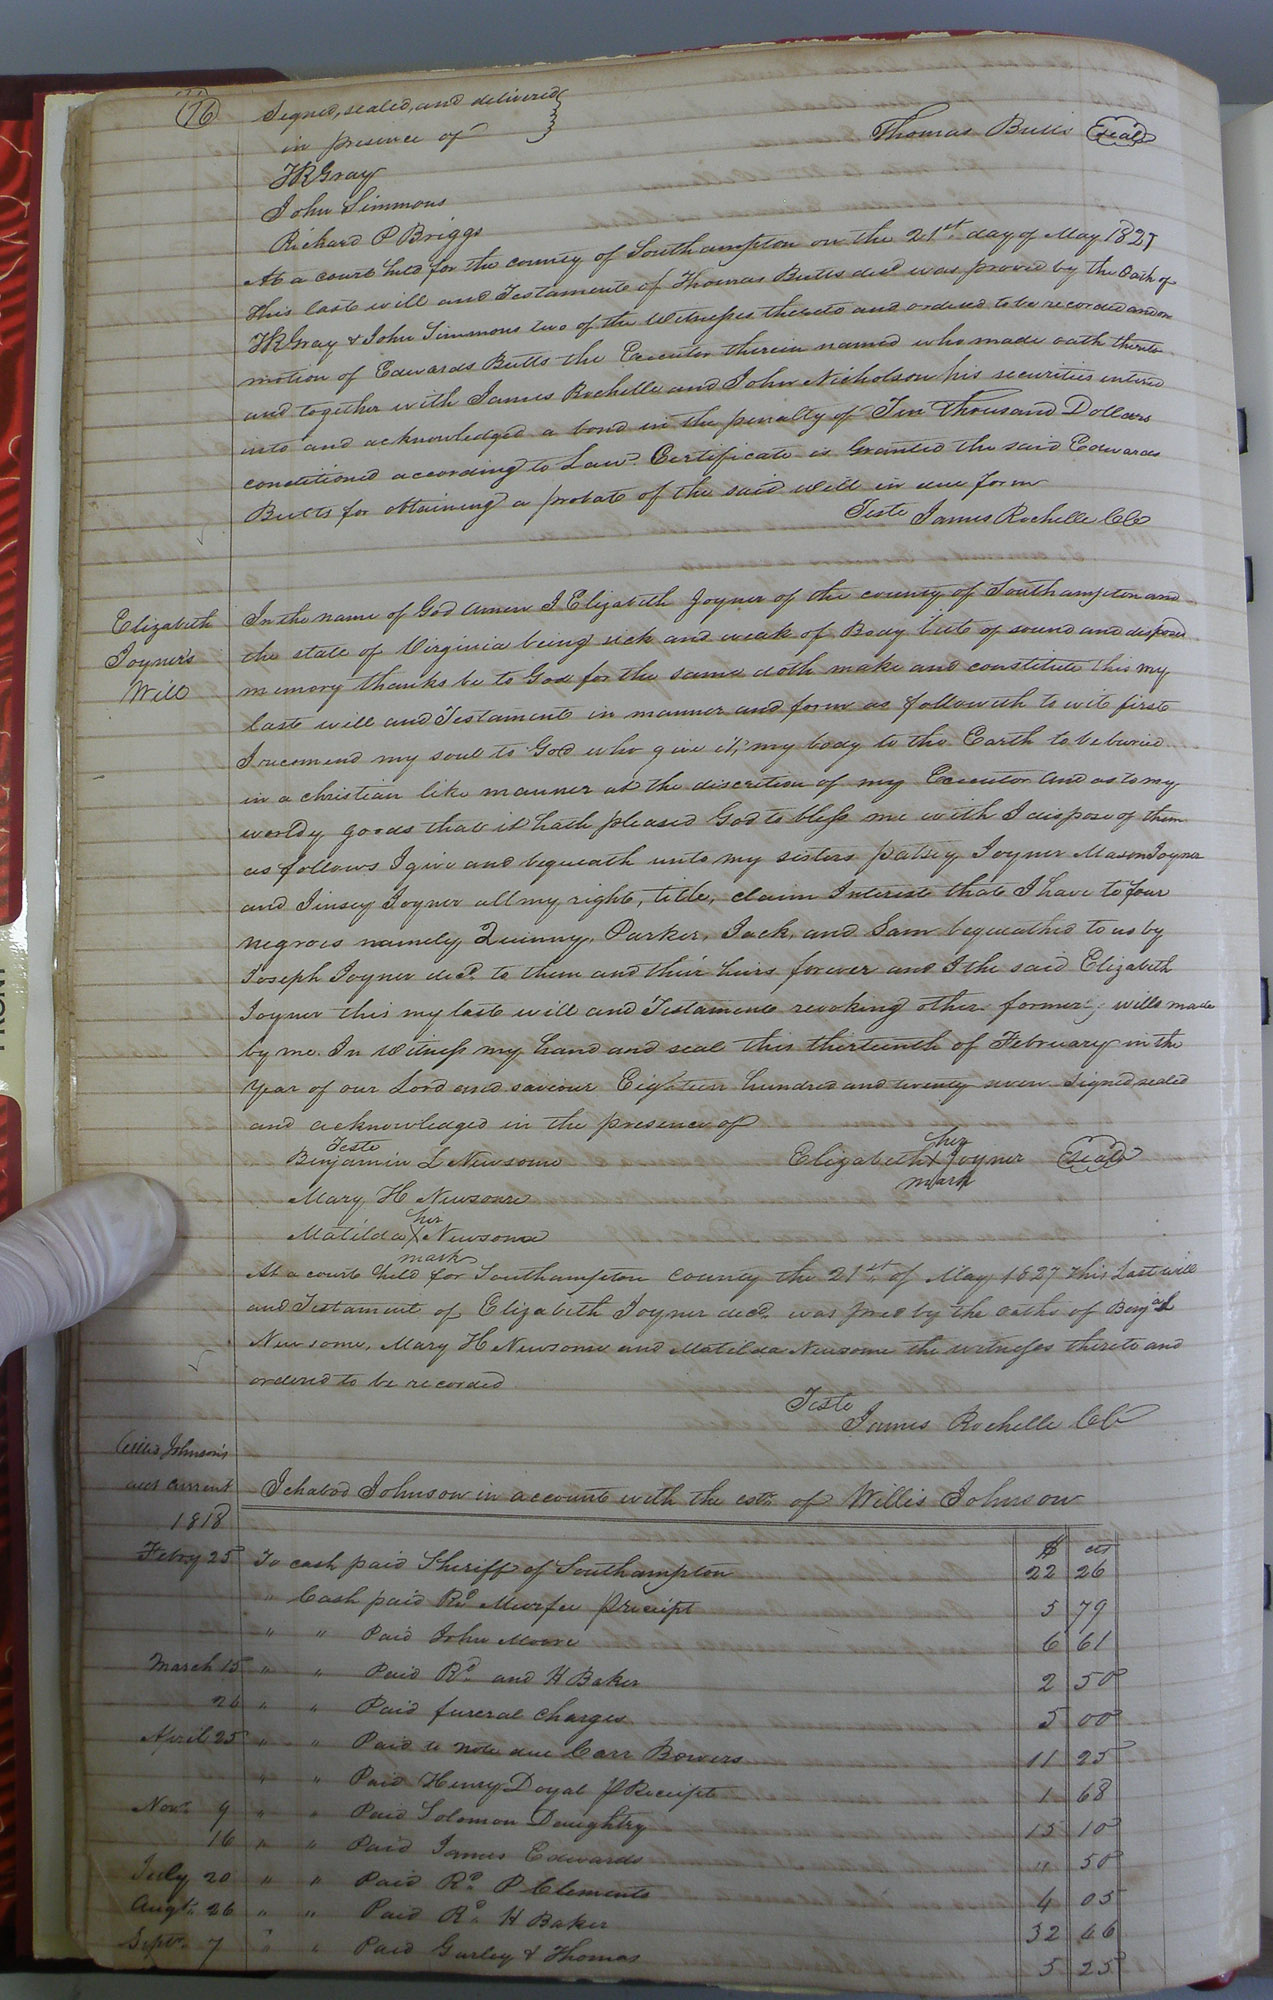 76
Signed, sealed, and delivered
in presence of
Thomas Butts seal
TR Gray
John Simmons
Richard P Briggs
At a court held for the county of Southampton on the 21st day of May 1827
this last will and Testament of Thomas Butts decd was proved by the Oath of
TR Gray & John Simmons two of the Witnesses thereto and ordered to be recorded and on
motion of Edwards Butts the Executor therein named who made oath thereto
and together with James Rochelle and John Nicholson his securities entered
into and acknowledged a bond in the penalty of Ten Thousand Dollars
conditioned according to Law. Certificate is Granted the said Edwards
Butts for obtaining a probate of the said will in due form
Teste James Rochelle CC
Elizabeth
Joyner's
Will
In the name of God amen I Elizabeth Joyner of the county of Southampton and
the state of Virginia being sick and weak of Body but of sound and disposed
memory thanks be to God for the same doth make and constitute this my
last will and Testament in manner and form as followeth to wit first
I recomend my soul to God who give it, my body to the Earth to be buried
in a christian like manner at the discretion of my Executor and as to my
worldy goods that it hath pleased God to bless me with I dispose of them
as follows I give and bequeath unto my sisters Patsey Joyner Mason Joyner
and Jinsey Joyner all my right, title, claim Interest that I have to four
negroes namely Quinny, Parker, Jack, and Sam bequeathed to us by
Joseph Joyner decd. to them and their heirs forever and I the said Elizabeth
Joyner this my last will and Testament revoking other former wills made
by me. In Witness my hand and seal this thirteenth of February in the
year of our Lord and saviour Eighteen hundred and twenty seven Signed sealed
and acknowledged in the presence of
Teste
Benjamin L Newsome
Elizabeth her X mark Joyner seal
Mary H Newsome
Matilda her X mark Newsome
At a court held for Southampton county the 21st of May 1827 this Last will
and Testament of Elizabeth Joyner decd. was proed by the oaths of Benj L
Newsome, Mary H Newsome and Matilda Newsome the witnesses thereto and
ordered to be recorded
Teste
James Rochelle CC
Willis Johnson's
acct current
Ichabod Johnson in account with the estn. of Willis Johnson
1818
$ cts
Febry 25 To cash paid Sheriff of Southampton 22 26
" Cash paid Rd Murfee pr receipt 5 79
" " Paid John Moore 6 61
March 15 " " Paid Rd. and H Baker 2 50
26 " " Paid funeral charges 5 00
April 25 " " Paid to note due Carr Bowers 11 25
" " Paid Henry Doyal pr Receipt 1 68
Novr. 9 " " Paid Solomon Daughtry 15 10
16 " " Paid James Edwards " 50
July 20 " " Paid Rd. P Clements 4 05
Augt. 26 " " Paid Rd. H Baker 32 46
Septr. 7 " " Paid Gurley & Thomas 5 25